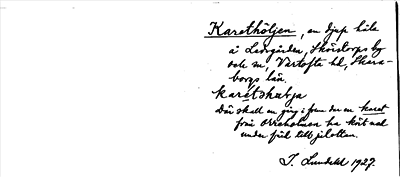 Karethöljen, en djup håla
å Ledsgården, Skörstorps by
och sn, Vartofta hd, Skara-
borgs län.
karétshatja
Där skall en gång i förra den en karet
från Orreholmen ha kört ned
under fjöl till jätten.
J. Lundahl 1927.